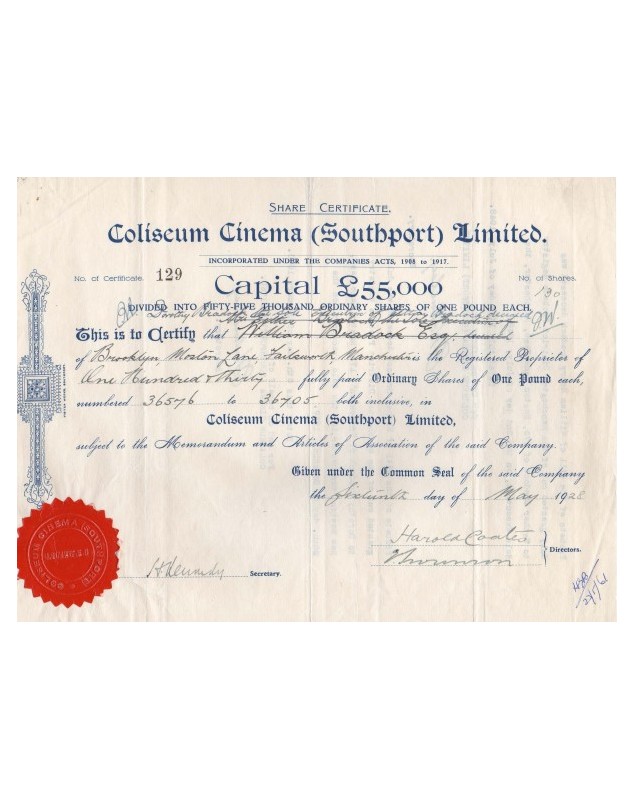 SHARE CERTIFICATE.
Coliseum Cinema (Southport) Limited.
INCORPORATED UNDER THE COMPANIES ACTS, 1908 to 1917.
No. of Certificate. 129
No. of Shares.
130
Capital £55,000
DIVIDED INTO FIFTY-FIVE THOUSAND ORDINARY SHARES OF ONE POUND EACH.
This is to Certify that William Bradock Esq.
of Brooklyn, Moston Lane, Failsworth, Manchester is the Registered Proprietor of
One Hundred & Thirty fully paid Ordinary Shares of One Pound each,
numbered 36576 to 36705 both inclusive, in
Coliseum Cinema (Southport) Limited,
subject to the Memorandum and Articles of Association of the said Company.
Given under the Common Seal of the said Company
the Sixteenth day of May 1928
Harold Coates
Directors.
H Kennedy Secretary.
COLISEUM CINEMA (SOUTHPORT)
LIMITED